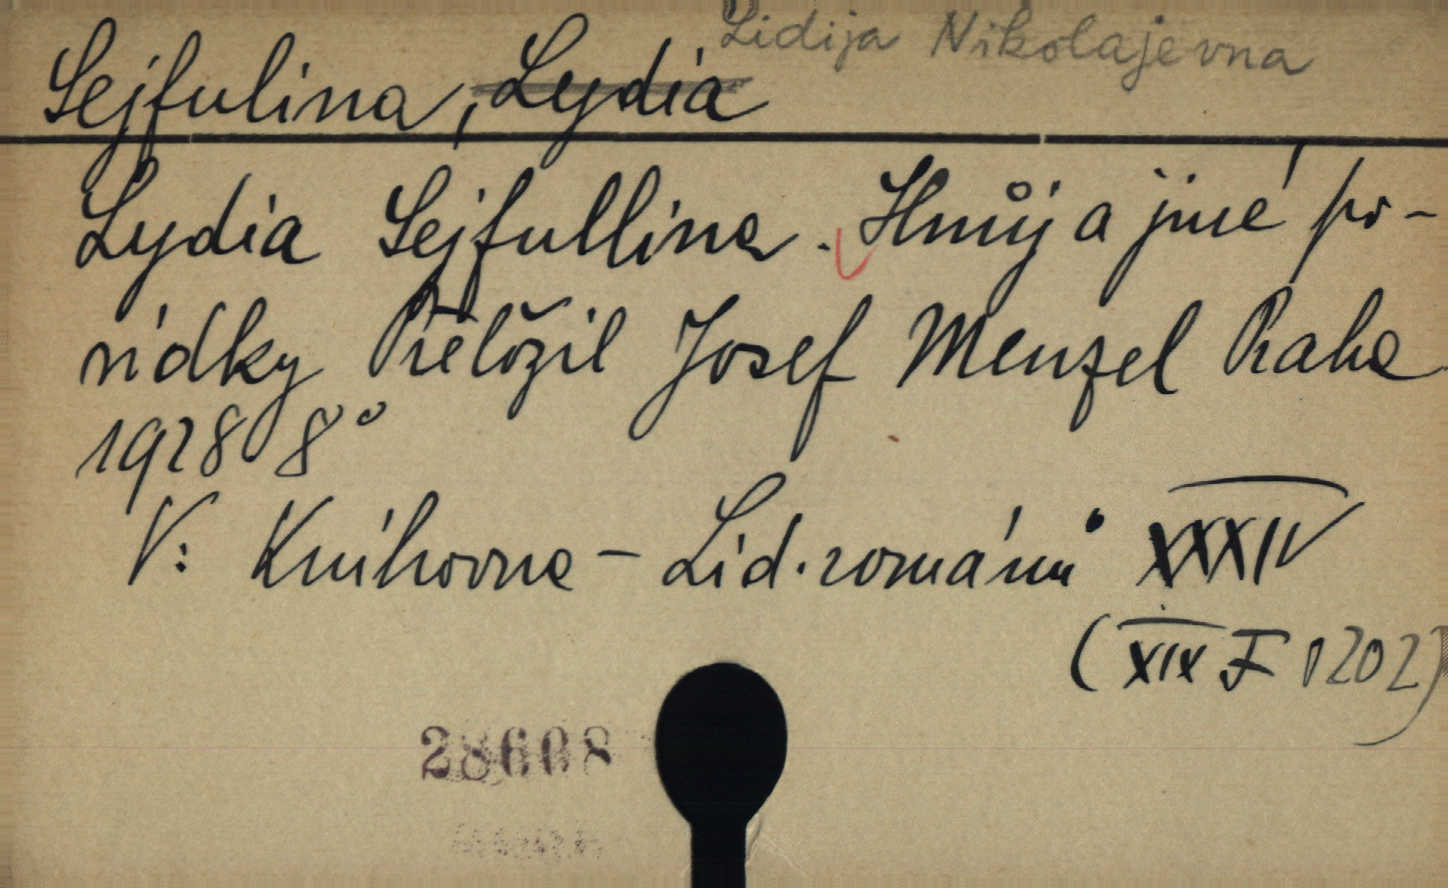 Lidija Nikolajevna
Sejfulina, Lydia
Lydia Sejfullina. Hnůj a jiné po-
vídky Přeložil Josef Menzel Praha
1928 8°
V: Knihovna - Lid. románů XXXIV
(XIX F 1202)
28608